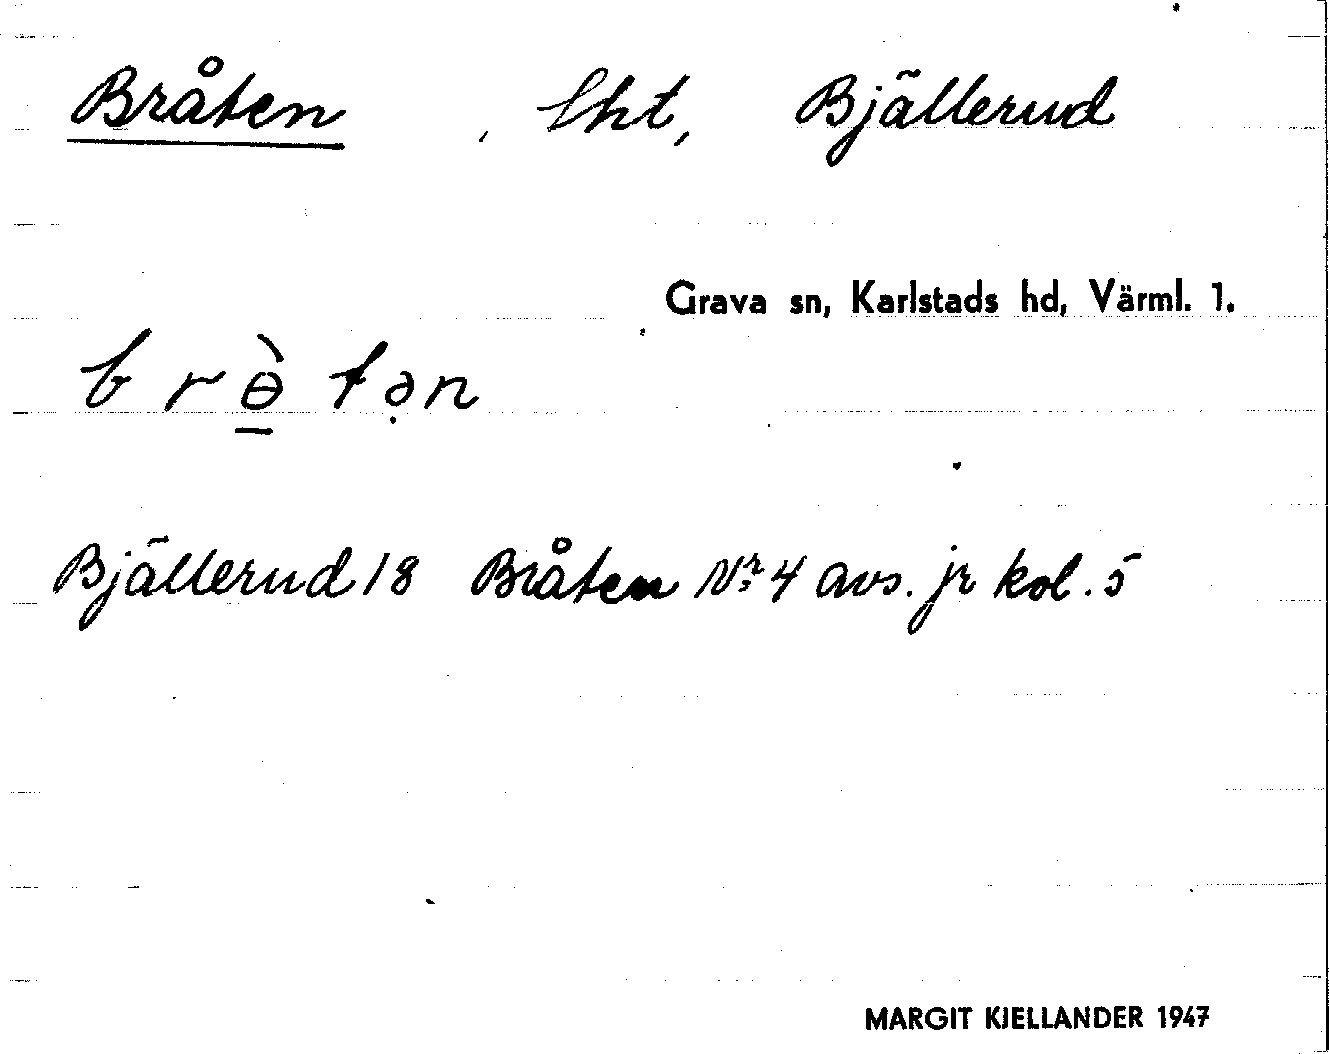 Bråten, lht, Bjällerud
Grava sn, Karlstads hd, Värml. 1.
br&#x275;̠̀tə̣n
Bjällerud 18 Bråten Nr 4 avs. jr kol. 5
MARGIT KJELLANDER 1947